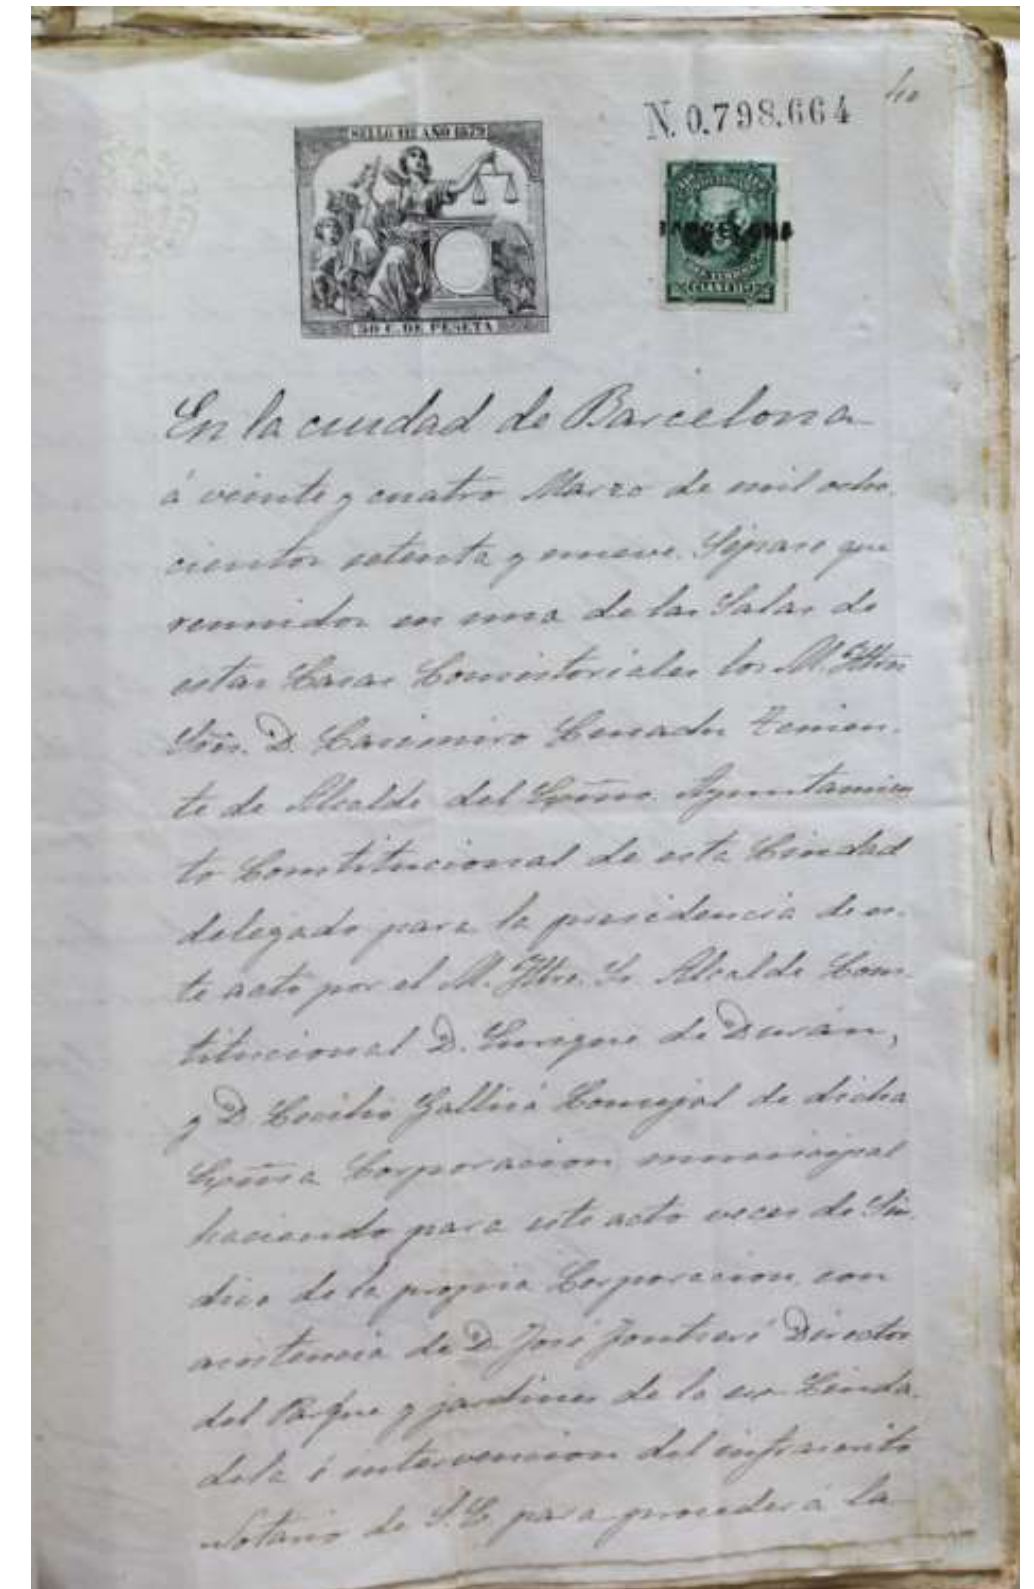 40
N. 0.798.664
SELLO 11º AÑO 1879
BARCELONA
50 C. DE PESETA
En la ciudad de Barcelona
á veinte y cuatro Marzo de mil ocho-
cientos setenta y nueve. Sépase que
reunidos en una de las Salas de
estas Casas Consistoriales los M. Iltres
Sres. D. Casimiro Tenien-
te de Alcalde del Excmo. Ayuntamien
to Constitucional de esta Ciudad
delegado para la presidencia de es-
te acto por el M. Iltre. Sr. Alcalde Cons-
titucional D. Enrique de Durán,
y D. Cecilio Concejal de dicha
Excma Corporacion municipal
haciendo para este acto veces de Sín-
dico de la propia Corporacion, con
asistencia de D. José Fontseré Director
del Parque y jardines de la ex-Ciuda-
dela é intervencion del infrascrito
Notario de S.E. para proceder á la